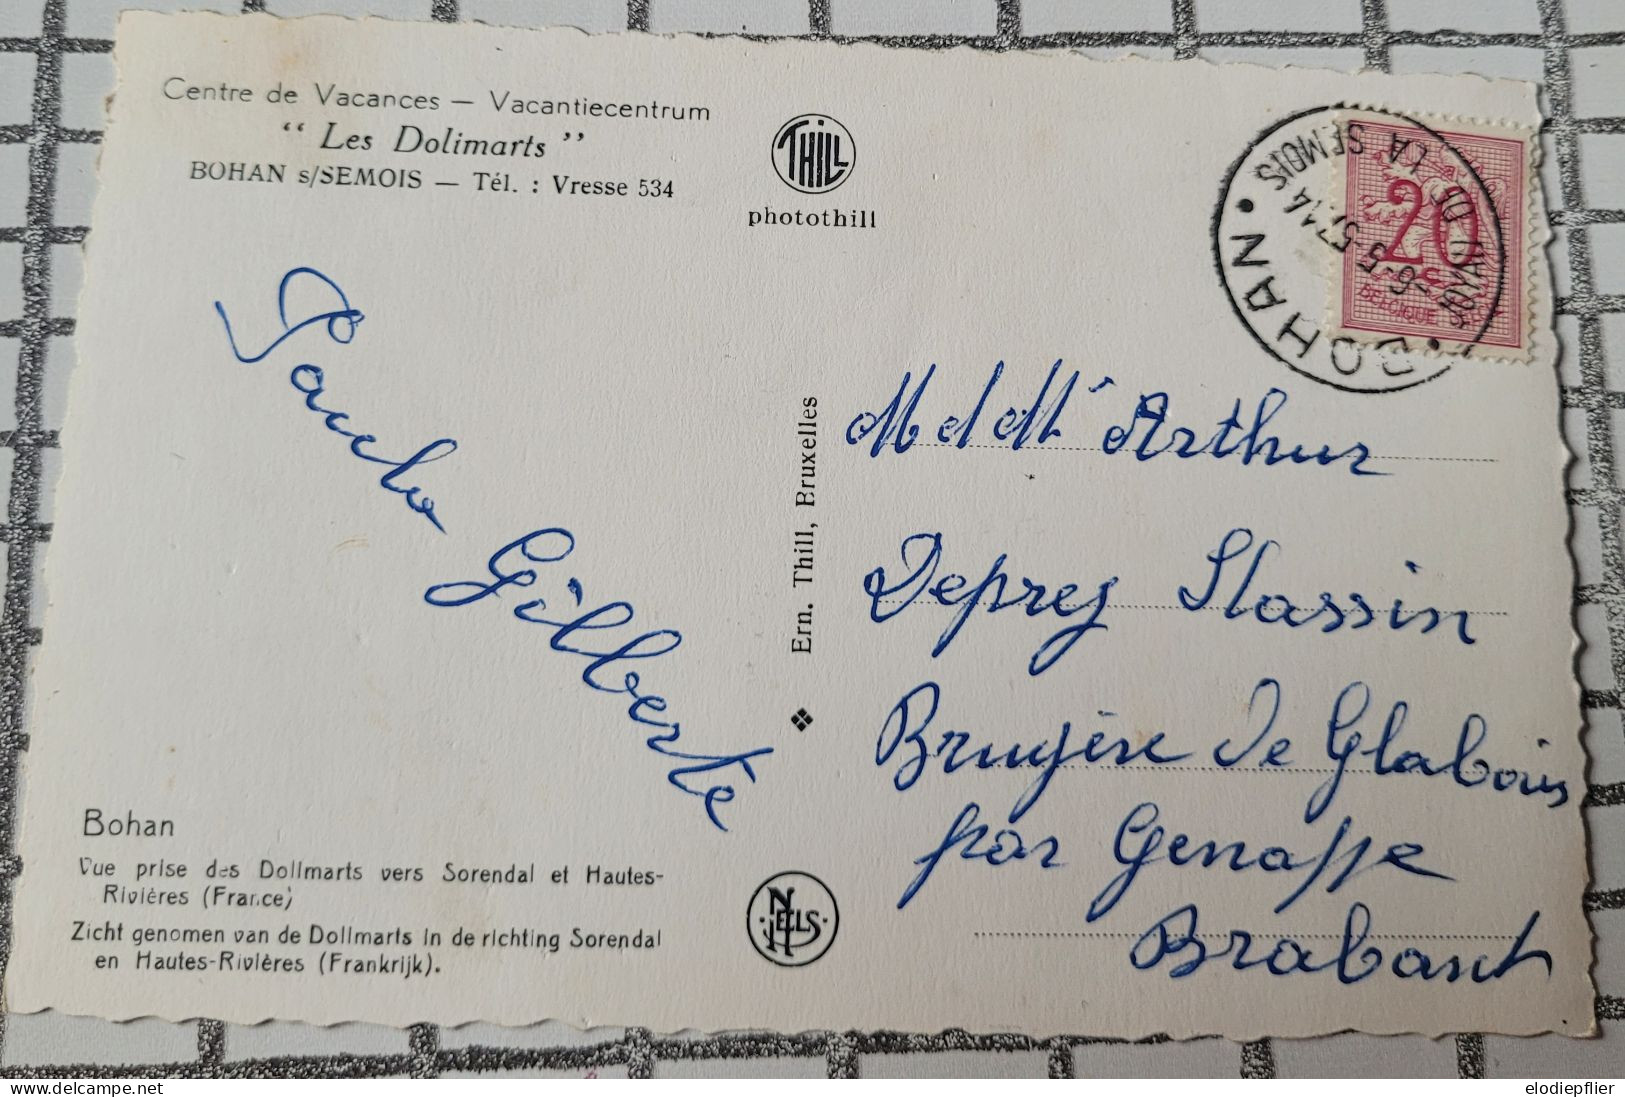 Centre de Vacances — Vacantiecentrum
“ Les Dolimarts ”
BOHAN s/SEMOIS — Tél. : Vresse 534
THILL
photothill
BOHAN
JOYAU DE LA SEMOIS
20
BELGIQUE
Gilberte
Ern. Thill, Bruxelles
M et Mme Arthur
Deprez Slassin
Bruyère de Glabais
par Genappe
Brabant
Bohan
Vue prise des Dolimarts vers Sorendal et Hautes-
Rivières (France)
Zicht genomen van de Dolimarts in de richting Sorendal
en Hautes-Rivières (Frankrijk).
NELS
elodiepflier